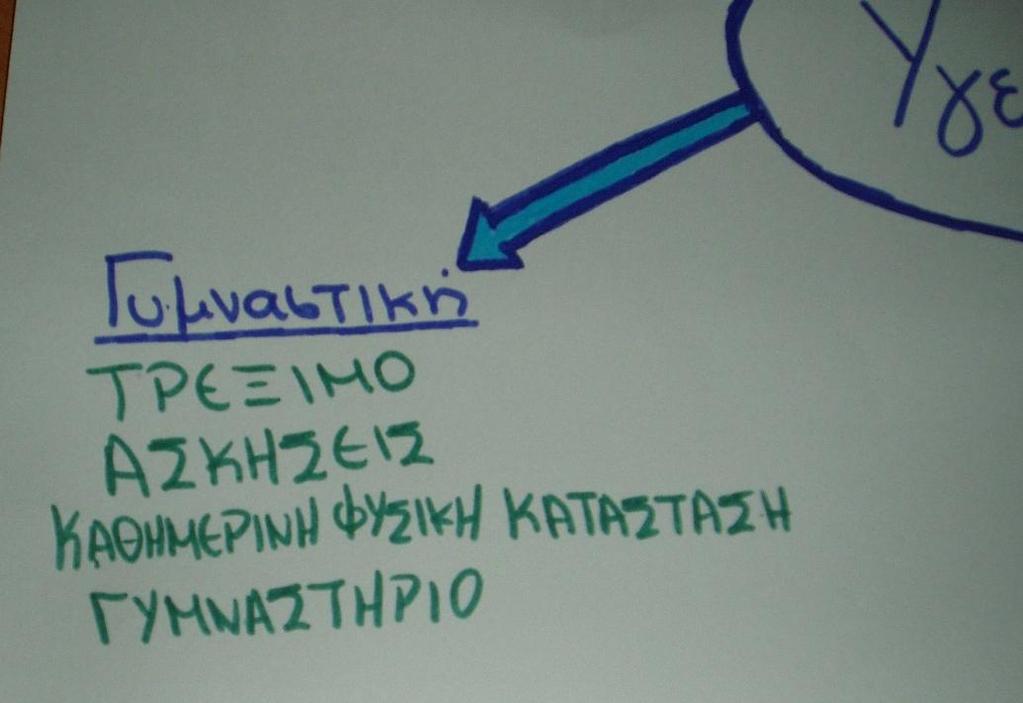 Υγε
Γυμναστική
ΤΡΕΞΙΜΟ
ΑΣΚΗΣΕΙΣ
ΚΑΘΗΜΕΡΙΝΗ ΦΥΣΙΚΗ ΚΑΤΑΣΤΑΣΗ
ΓΥΜΝΑΣΤΗΡΙΟ